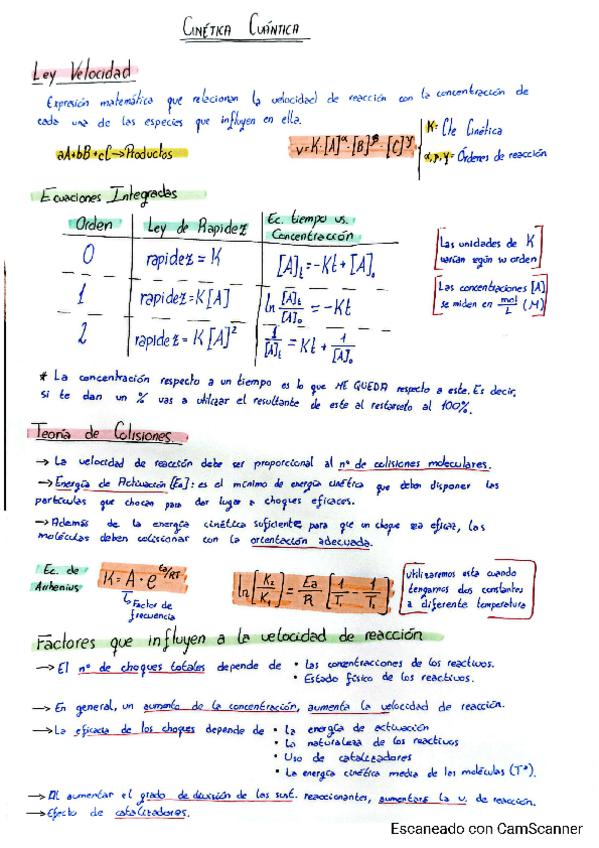 CINÉTICA CUÁNTICA
Ley Velocidad
Expresión matemática que relacionan la velocidad de reacción con la concentración de
cada una de las especies que influyen en ella.
aA+bB+cC→Productos
v=K·[A]^α·[B]^β·[C]^γ
K= Cte Cinética
α, β, γ= Órdenes de reacción
Ecuaciones Integradas
Orden Ley de Rapidez Ec. tiempo vs. Concentracción
0 rapidez = K [A]t = -Kt + [A]₀
1 rapidez = K[A] ln [A]t/[A]₀ = -Kt
2 rapidez = K[A]² 1/[A]t = Kt + 1/[A]₀
Las unidades de K
varían según su orden
Las concentraciones [A]
se miden en mol/L (M)
* La concentración respecto a un tiempo es lo que ME QUEDA respecto a este. Es decir,
si te dan un % vas a utilizar el resultante de este al restarselo al 100%.
Teoría de Colisiones.
→ La velocidad de reacción debe ser proporcional al nº de colisiones moleculares.
→ Energía de Activación (Ea): es el mínimo de energía cinética que deben disponer las
partículas que chocan para dar lugar a choques eficaces.
→ Además de la energía cinética suficiente, para que un choque sea eficaz, las
moléculas deben colisionar con la orientación adecuada.
Ec. de
Arrhenius
K = A · e^Ea/RT
↳ Factor de
frecuencia
ln[K₂/K₁] = Ea/R [1/T₁ - 1/T₂]
Utilizaremos esta cuando
tengamos dos constantes
a diferente temperatura
Factores que influyen a la velocidad de reacción
→ El nº de choques totales depende de • Las concentraciones de los reactivos.
• Estado físico de los reactivos.
→ En general, un aumento de la concentración, aumenta la velocidad de reacción.
→ La eficacia de los choques depende de • La energía de activación
• La naturaleza de los reactivos
• Uso de catalizadores
• La energía cinética media de las moléculas (Tª).
→ Al aumentar el grado de división de las sust. reaccionantes, aumentara la v. de reacción.
→ Efecto de catalizadores.
Escaneado con CamScanner